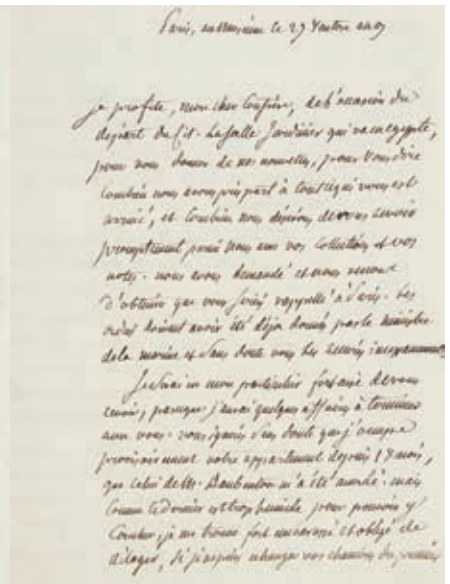 Paris, au Muséum le 27 Ventose an 9
je profite, mon cher Confrère, de l'occasion du
départ du Cit. Lasalle Jardinier qui va en egypte,
pour vous donner de nos nouvelles, pour vous dire
combien nous avons pris part à tout ce qui vous est
arrivé, et combien nous désirons de vous revoir
promptement parmi nous avec vos collections et vos
notes. nous avons demandé et nous venons
d'obtenir que vous soiés rappellé à Paris. Les
ordres doivent avoir été déja donné par le ministre
de la marine et sans doute vous les recevrés
Je serai en mon particulier fort aise de vous
revoir, parceque j'aurai quelques affaires à terminer
avec vous. vous ignorés sans doute que j'occupe
provisoirement votre appartement depuis 18 mois,
que celui de M. Daubenton m'a été accordé. mais
comme ce dernier est trop humide pour pouvoir y
coucher, je me trouve fort embarrassé et obligé de
si j'expose vos chambres du premier